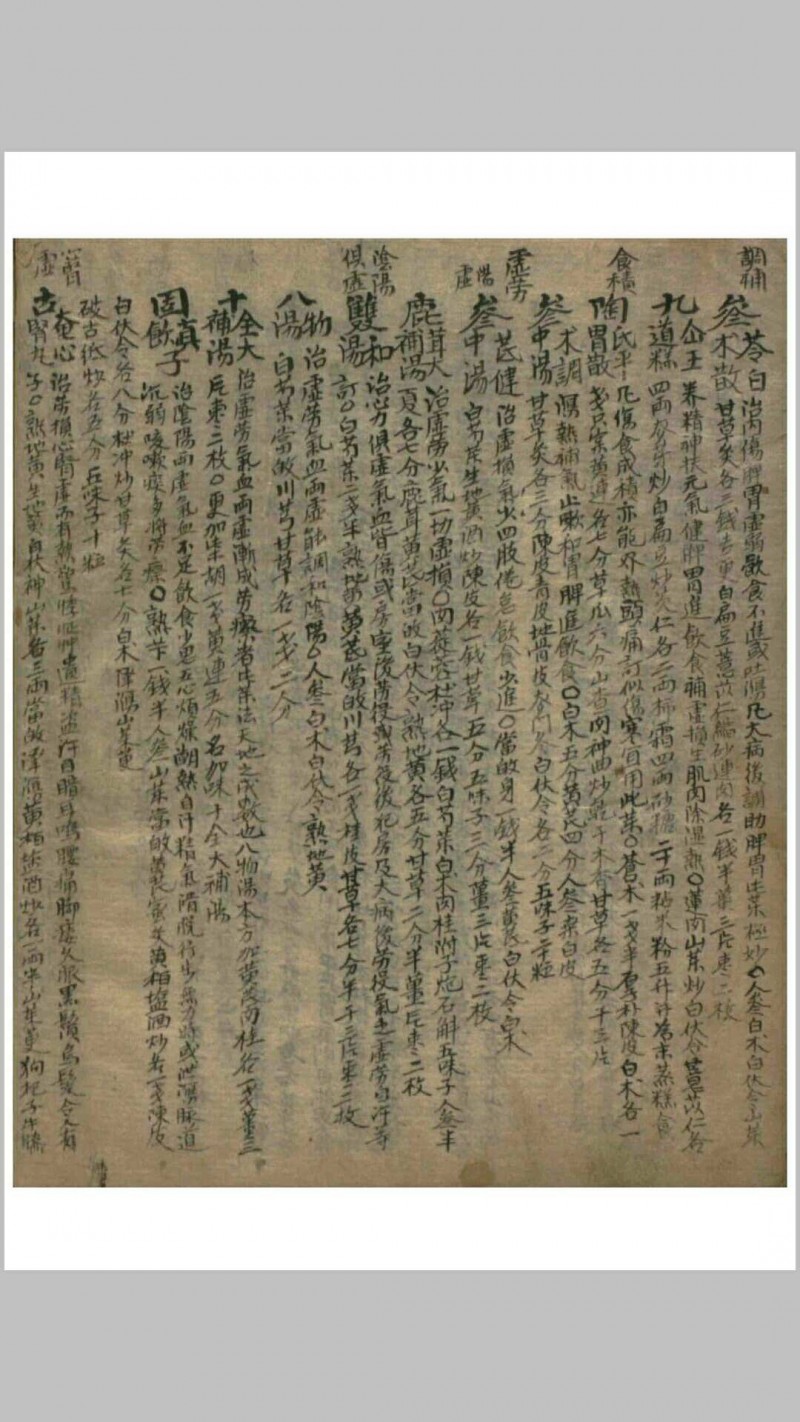 調補
參苓白
朮散
治內傷脾胃虛弱飮食不進或吐瀉凡大病後調助脾胃此藥極妙○人參白朮白伏令山藥
甘草炙各三錢 薏苡仁 縮砂 各一錢半薑三片棗二枚
九仙王
道糕
養精神扶元氣健脾胃進飮食補虛損生肌肉除濕熱○蓮肉山藥炒白伏令薏苡仁各
四兩麥芽炒白扁豆炒 仁各二兩柿霜四兩砂糖二十兩粘米粉五升 爲末蒸糕食
食積
陶氏平
胃散
凡傷食成積亦能外熱頭痛 似傷寒宜用此藥○蒼朮一戔半厚朴陳皮白朮各一
戔 黃連各七分草果六分山査肉神曲炒 干木香甘草各五分干三片
參朮調
中湯
瀉熱補氣止嗽和胃脾進飮食○白朮五分黃芪四分人參桑白皮
甘草炙各三分陳皮靑皮地骨皮麥門冬白伏令各二分五味子二十粒
虛勞
陽虛
參芪健
中湯
治虛損氣少四肢倦怠飮食少進○當歸身一錢半人參黃芪白伏令白朮
白芍 生地黃酒炒陳皮各一錢甘草五分五味子三分薑三片棗二枚
鹿茸大
補湯
治虛勞少氣一切虛損○肉蓯蓉杜冲各一錢白芍藥白朮肉桂附子炮石斛五味子人參半
夏各七分鹿茸黃芪當歸白伏令熟地黃各五分甘草二分半薑三片棗二枚
陰陽
俱虛
雙和
湯
治心勞俱虛氣血皆傷或房室後勞役或勞役後犯房及大病後勞役氣乏虛勞自汗等
○白芍藥二戔半熟地黃黃芪當歸川芎各一戔桂皮甘草各七分半干三片棗二枚
八物
湯
治虛勞氣血兩虛能調和陰陽○人參白朮白伏令熟地黃
白芍藥當歸川芎甘草各一戔二分
十全大
補湯
治虛勞氣血兩虛漸成勞瘵者此藥法天地之成數也八物湯本方加黃芪肉桂各一戔薑三
片棗二枚○更加柴胡一戔黃連五分名加味十全大補湯
固眞
飮子
治陰陽兩虛氣血不足飮食少思五心煩燥潮熱自汗精氣滑脫行步無力時或泄瀉脉道
沉弱咳嗽痰多將成勞瘵○熟芐一錢半人參山藥當歸黃芪蜜炙黃柏塩酒炒各一戔陳皮
白伏令各八分杜冲炒甘草炙各七分白朮澤瀉山茱萸
破古紙炒各五分五味子十粒
心腎
虛
古庵心
腎丸
治勞損心腎虛而有熱驚悸怔忡遺精盜汗目暗耳鳴腰痛脚痿久服黑鬚烏髮令人有
子○熟地黃生地黃白伏神山藥各三兩當歸澤瀉黃柏塩酒炒各一兩半山茱萸狗杞子牛膝